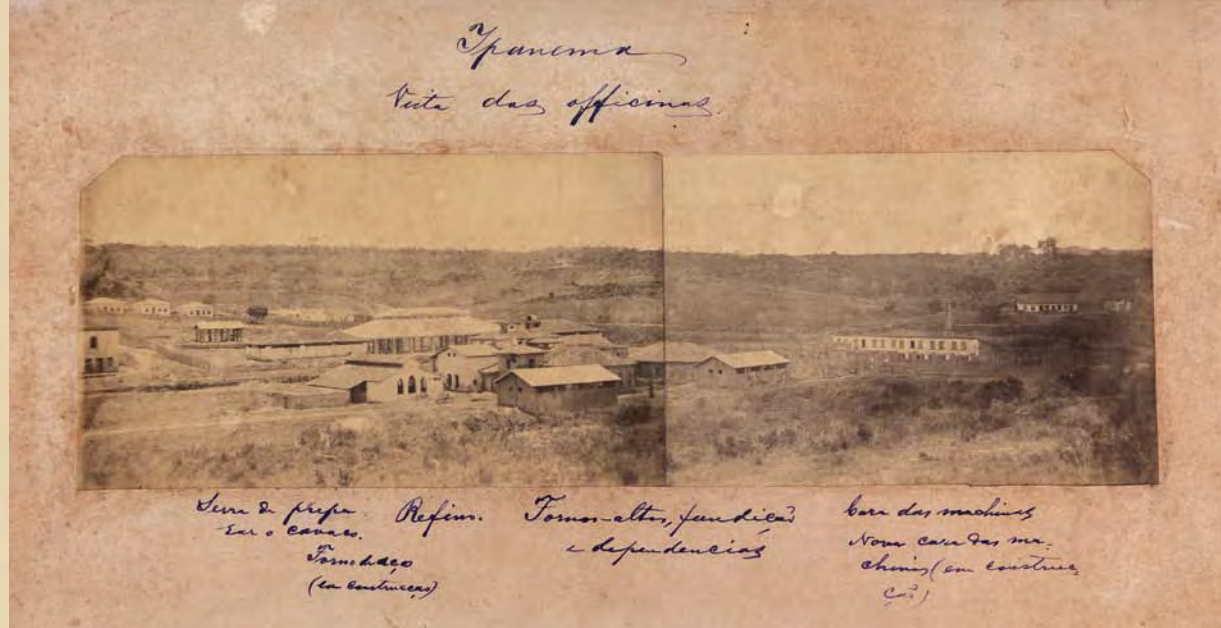 Ypanema
Vista das officinas.
Serra de prepa-
rar o cavaco.
Forno de aço
(em construcção)
Refino.
Fornos-altos, fundição
e dependencias
Casa das machinas
Nova casa das ma-
chinas (em construc-
ção)